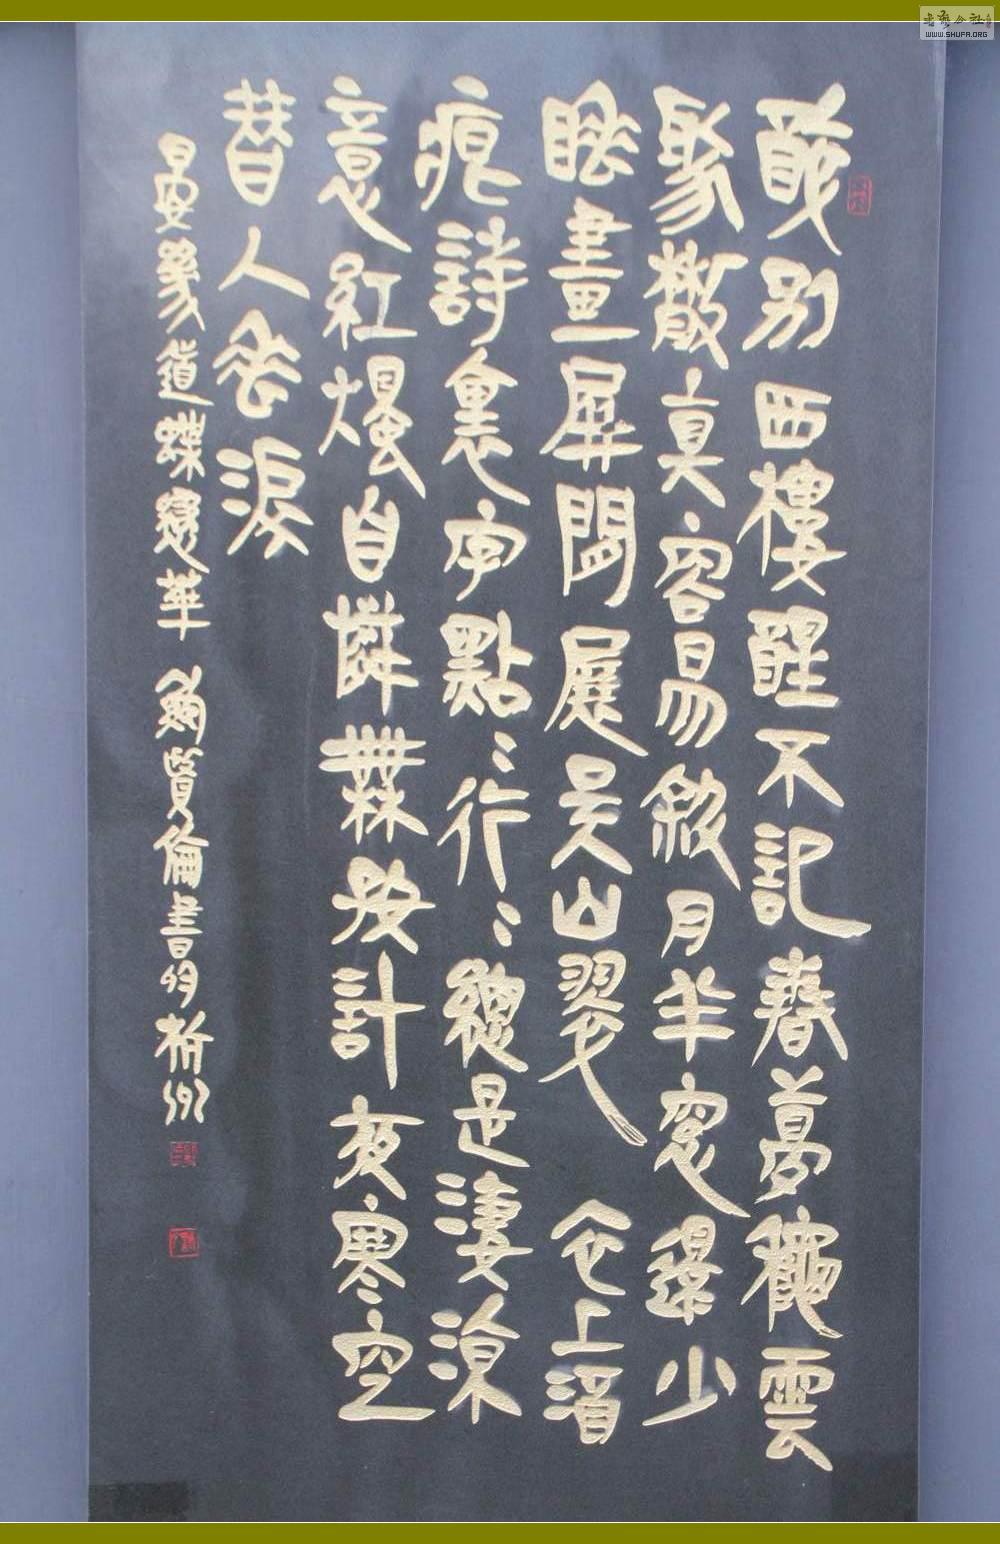 醉別西樓醒不記春夢龝雲
聚散真容易斜月半窗還少
睡畫屏閒展吳山翠 衣上酒
痕詩裏字點〻行〻總是淒涼
意紅燭自憐無好計夜寒空
替人垂淚
晏幾道蝶戀華 鮑賢倫書於杭州
书艺公社
WWW.SHUFA.ORG